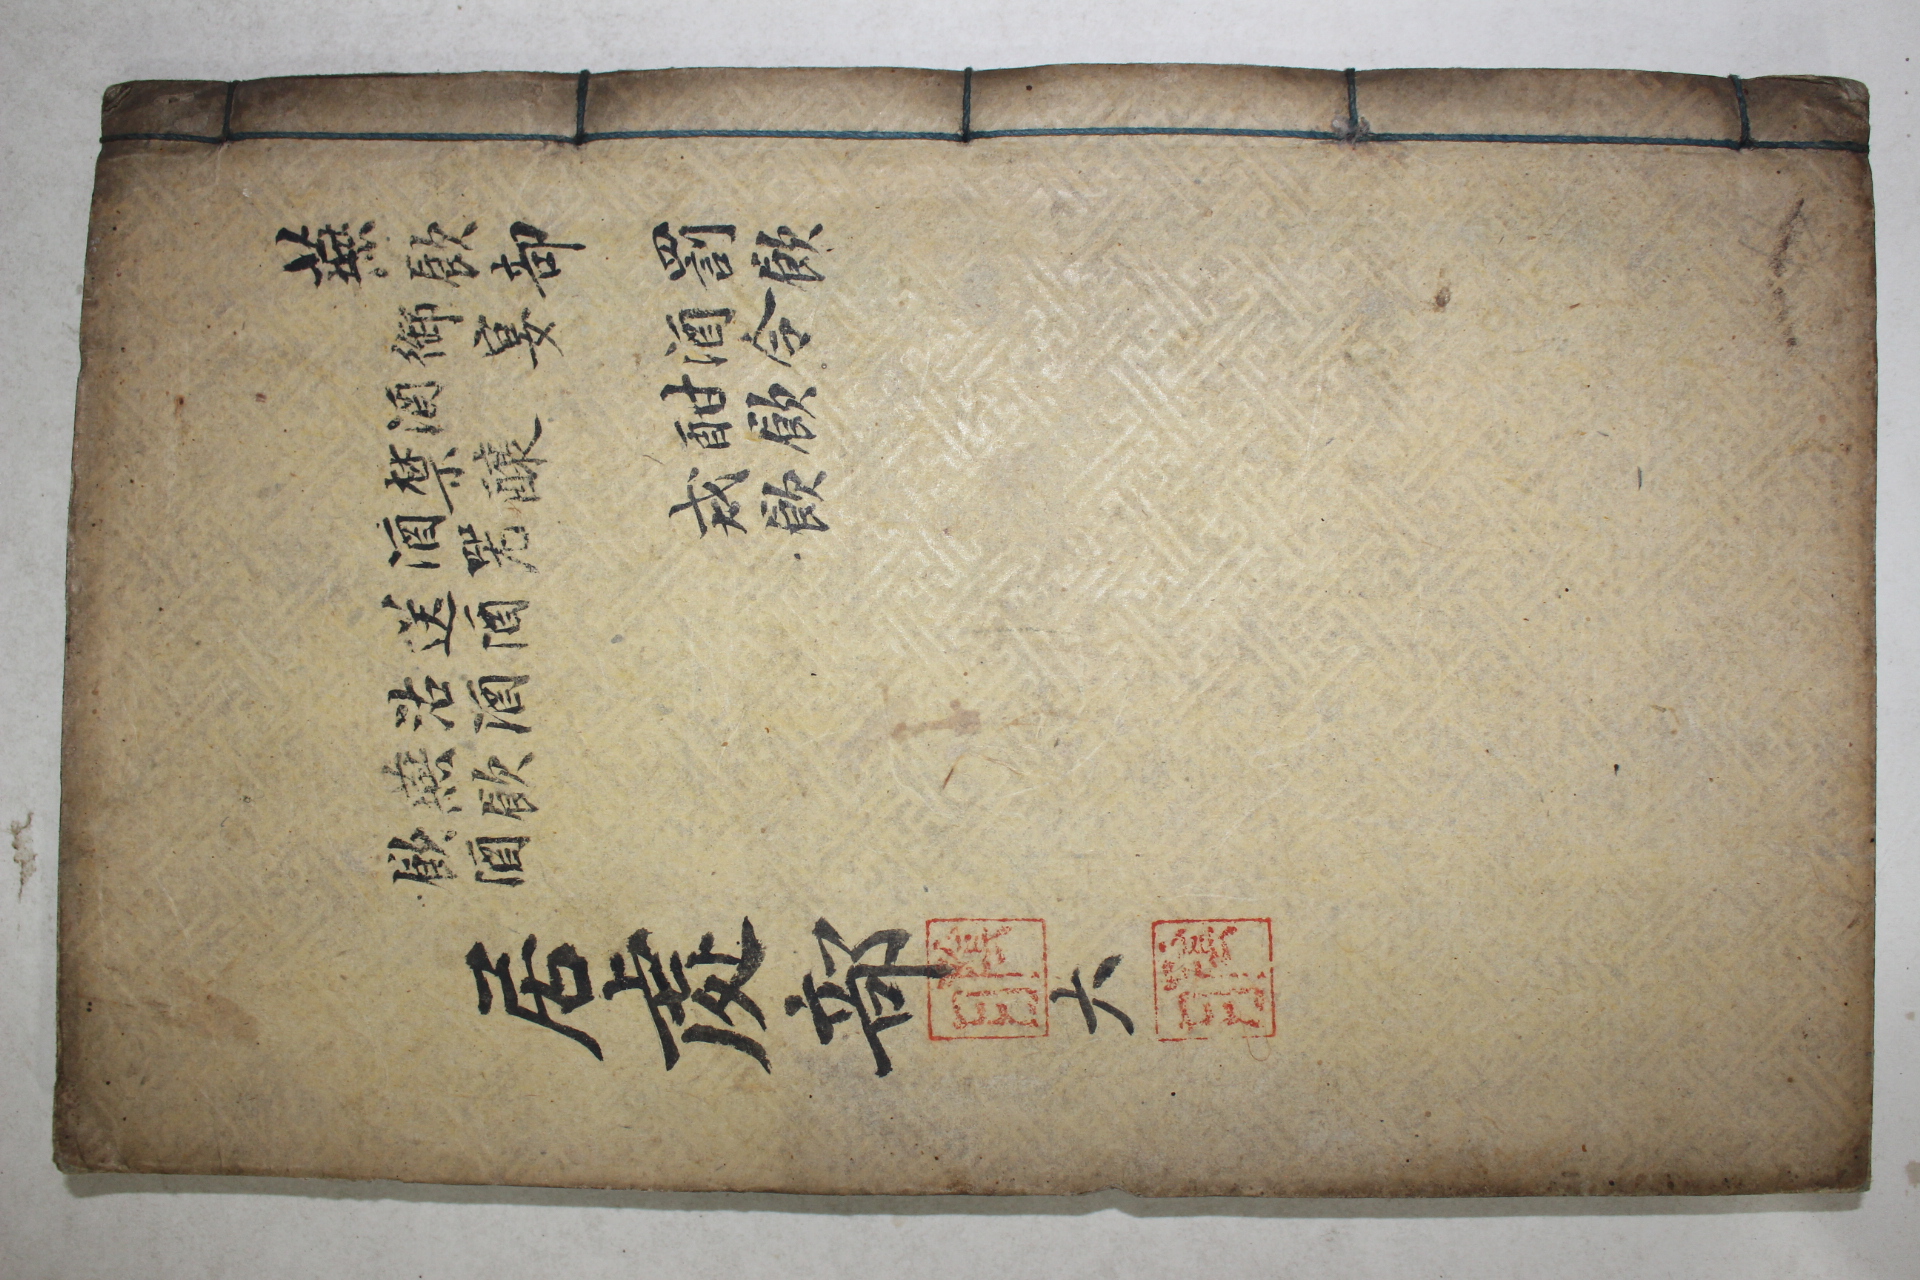 燕飮部
御宴
酒
禁釀
酒器
送酒
沽酒
燕飮
飮酒
罰飮
酒令
酣飮
戒飮
居處部
六